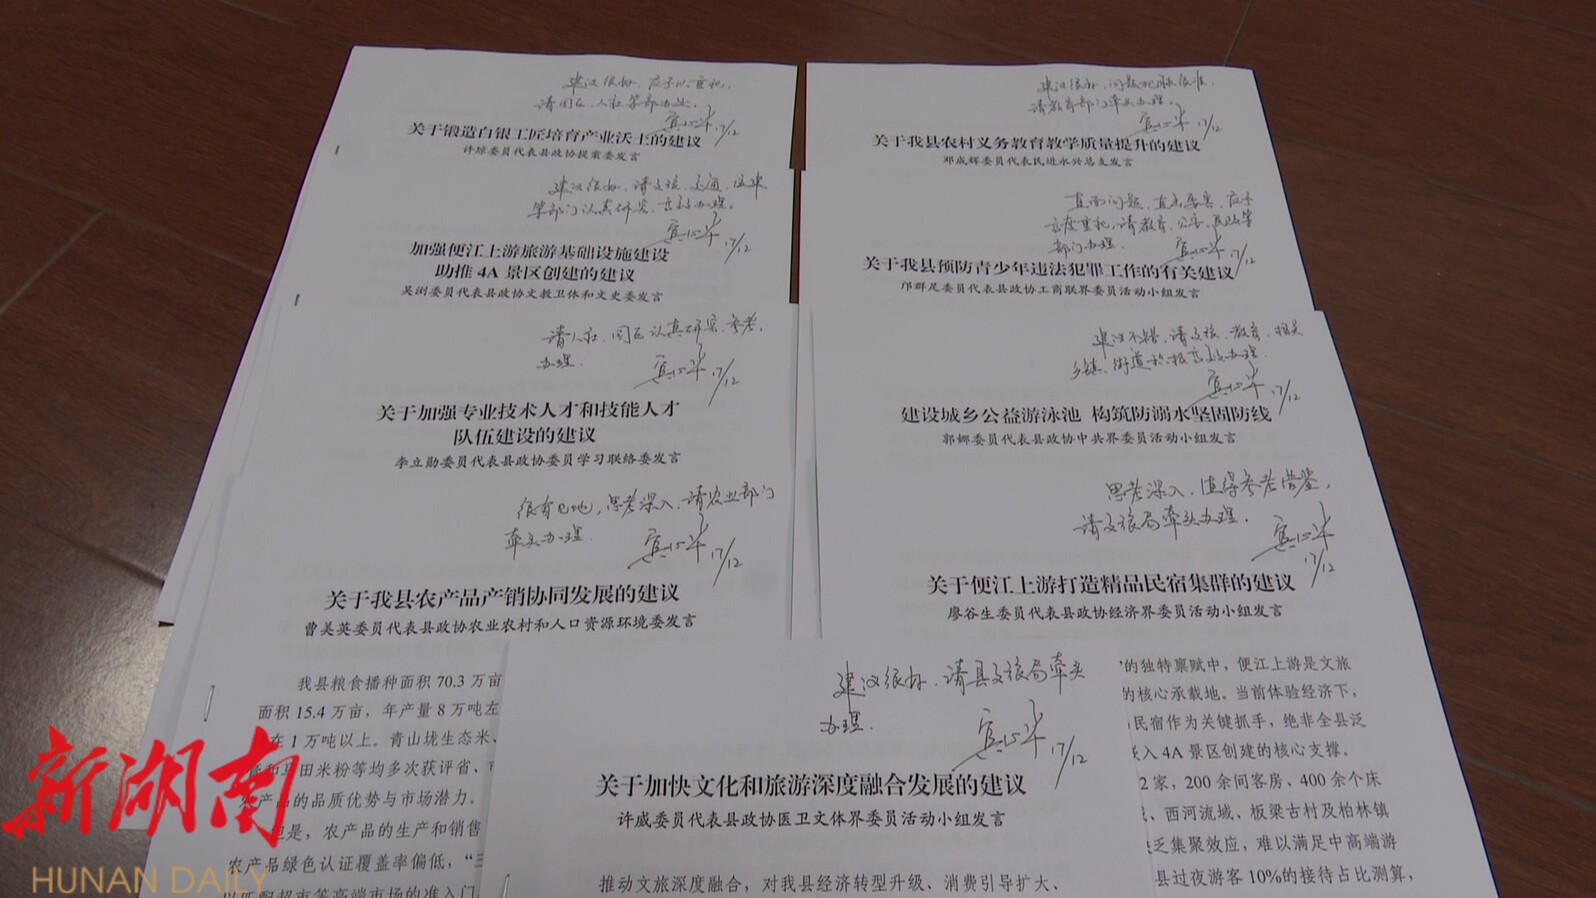 建议很好，应予以重视，
请园区、人社等部办理。
17/12
关于锻造白银工匠培育产业沃土的建议
许琼委员代表县政协提案委发言
建议很好，请文旅、交通、住建
等部门认真研究，言好办理。
17/12
加强便江上游旅游基础设施建设
助推 4A 景区创建的建议
吴浏委员代表县政协文教卫体和文史委发言
请人社、园区认真研究、参考，
办理。
17/12
关于加强专业技术人才和技能人才
队伍建设的建议
李立勋委员代表县政协委员学习联络委发言
很有见地，思考深入，请农业部门
牵头办理。
17/12
关于我县农产品产销协同发展的建议
曹美英委员代表县政协农业农村和人口资源环境委发言
我县粮食播种面积 70.3 万亩
面积 15.4 万亩，年产量 8 万吨左
在 1 万吨以上。青山垅生态米、
和马田米粉等均多次获评省、
农产品的品质优势与市场潜力。
但是，农产品的生产和销售
农产品绿色认证覆盖率偏低，“三
以匹配超市等高端市场的准入门
建议很好，问题把脉很准，
请教育部门牵头办理。
17/12
关于我县农村义务教育教学质量提升的建议
邓成辉委员代表民进永兴总支发言
直面问题，直击要害，应予
高度重视，请教育、公安、民政等
部门办理。
17/12
关于我县预防青少年违法犯罪工作的有关建议
邝群足委员代表县政协工商联界委员活动小组发言
建议不错，请文旅、教育、相关
乡镇、街道
办理。
17/12
建设城乡公益游泳池 构筑防溺水坚固防线
郭娜委员代表县政协中共界委员活动小组发言
思考深入，值得参考借鉴，
请文旅局牵头办理。
17/12
关于便江上游打造精品民宿集群的建议
廖谷生委员代表县政协经济界委员活动小组发言
”的独特禀赋中，便江上游是文旅
的核心承载地。当前体验经济下，
民宿作为关键抓手，绝非全县泛
入 4A 景区创建的核心支撑。
2 家，200 余间客房、400 余个床
、西河流域、板梁古村及柏林镇
乏集聚效应，难以满足中高端游
县过夜游客 10%的接待占比测算，
建议很好，请县文旅局牵头
办理。
17/12
关于加快文化和旅游深度融合发展的建议
许威委员代表县政协医卫文体界委员活动小组发言
推动文旅深度融合，对我县经济转型升级、消费引导扩大、
新湖南
HUNAN DAILY